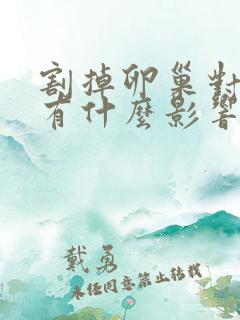 割掉卵巢對
有什麼影響
戴勇
未經同意禁止轉載